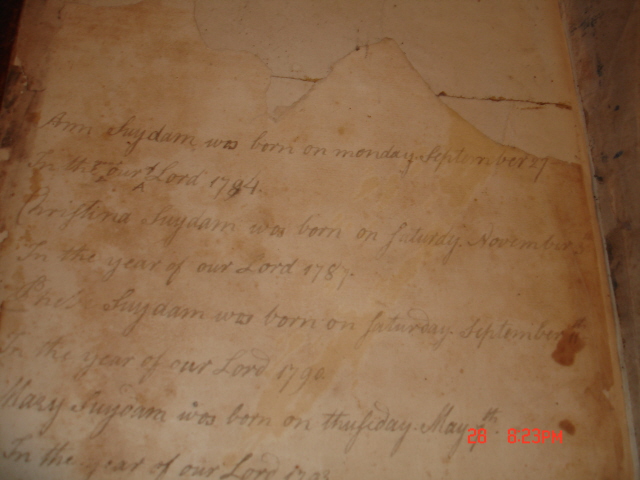 Ann Suydam was born on monday September 27
In the our Lord 1784.
Christina Suydam was born on saturday November
In the year of our Lord 1787.
Phebe Suydam was born on saturday September
In the year of our Lord 1790
Mary Suydam was born on thursday May th
In the year of our Lord 1793
28 8:23PM